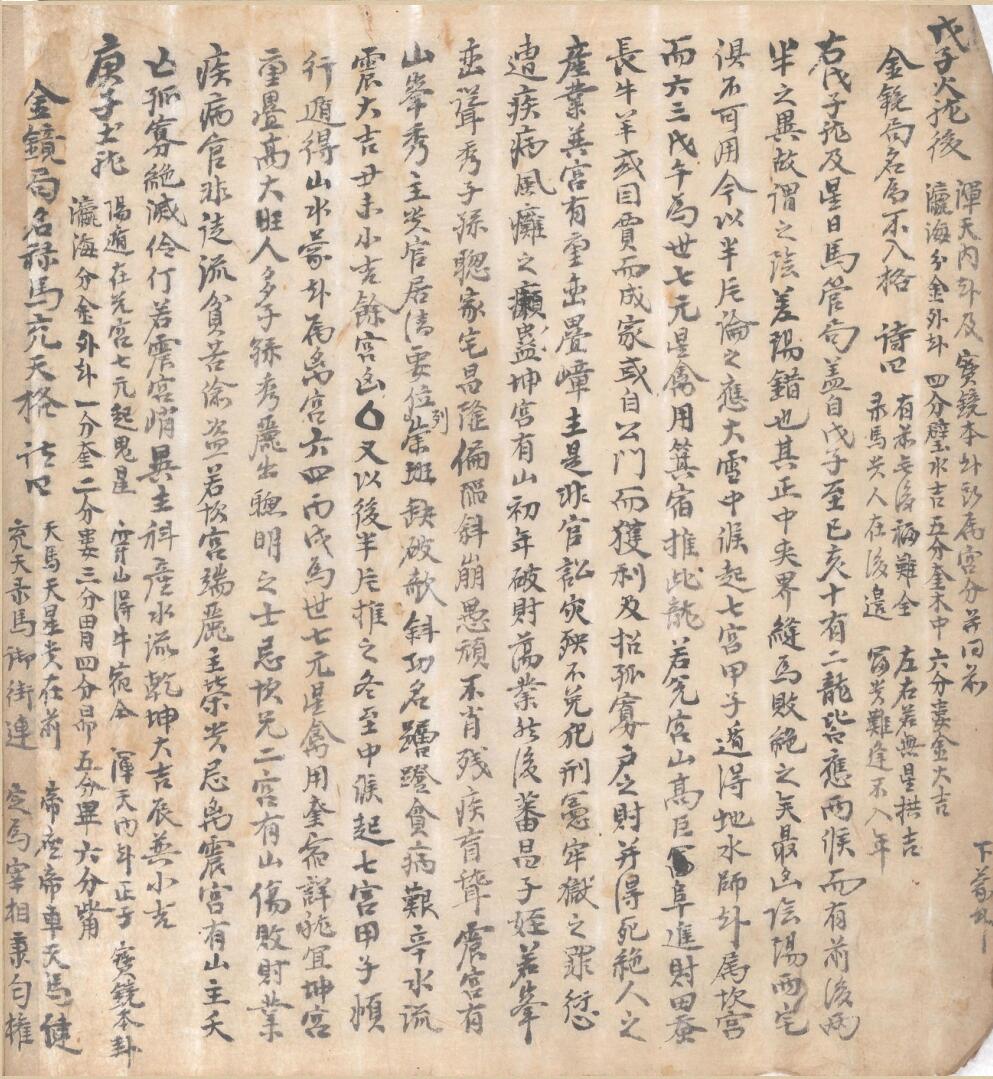 戊子火龍後
渾天内卦及寳鏡本卦���属宫分並同前
瀛海分金外卦 四分壁水吉五分奎木中 六分婁金大吉
金鏡局名為不入格 詩曰
有前無後福難全 左右若無星拱吉
录馬貴人在後邉 冨貴難逢不入年
右戊子龍及星日馬管局盖自戊子至己亥十有二龍皆應兩候而有前後兩
半之異故謂之陰差陽錯也其正中夾界縫為敗絶之矣最凶陰陽兩宅
俱不可用今以半片論之應大雪中候起七宫甲子遁得地水師卦属坎宫
而六三戊午為世七元星禽用箕宿推此龍若兊宫山髙巨冨阜進財田蚕
長牛羊或因賈而成家或自公門而獲利及招孤寡户之財并得死絶人之
産業巽宫有重峦疊嶂主是非官訟灾殃不免犯刑憲牢獄之罪愆
遭疾病風癱之癩蠱坤宫有山初年破財蕩業然後蕃昌子姪若峯
峦聳秀子孫聰家宅昌隆偏嵓斜崩愚頑不肖残疾盲聋震宫有
山峯秀主贵官居清要位列崇班缺破欹斜功名蹭蹬貧病艱辛水流
震大吉丑未小吉餘宫凶 又以後半片推之冬至中候起七宫甲子順
行遁得山水蒙卦属离宫六四丙戌為世七元星禽用奎宿詳龍宜坤宫
重疊髙大旺人多子孫秀麗出聰明之士忌坎兊二宫有山傷敗財業
疾病官非徒流貧苦偷盗若坎宫端麗主荣贵忌离震宫有山主夭
亡孤寡絶滅伶仃若震宫峭異主科 水流乾坤大吉辰巽小吉
庚子土龍
陽遁在兊宫七元起鬼星 穿山得牛宿金 渾天内卦正子 寳鏡本卦
瀛海分金外卦一分奎二分婁三分胃四分昴五分畢六分觜
金鏡局名禄馬兖天格 詩曰
天馬天星贵在前 帝座帝車天馬健
兖天录馬御街連 定為宰相秉匀權